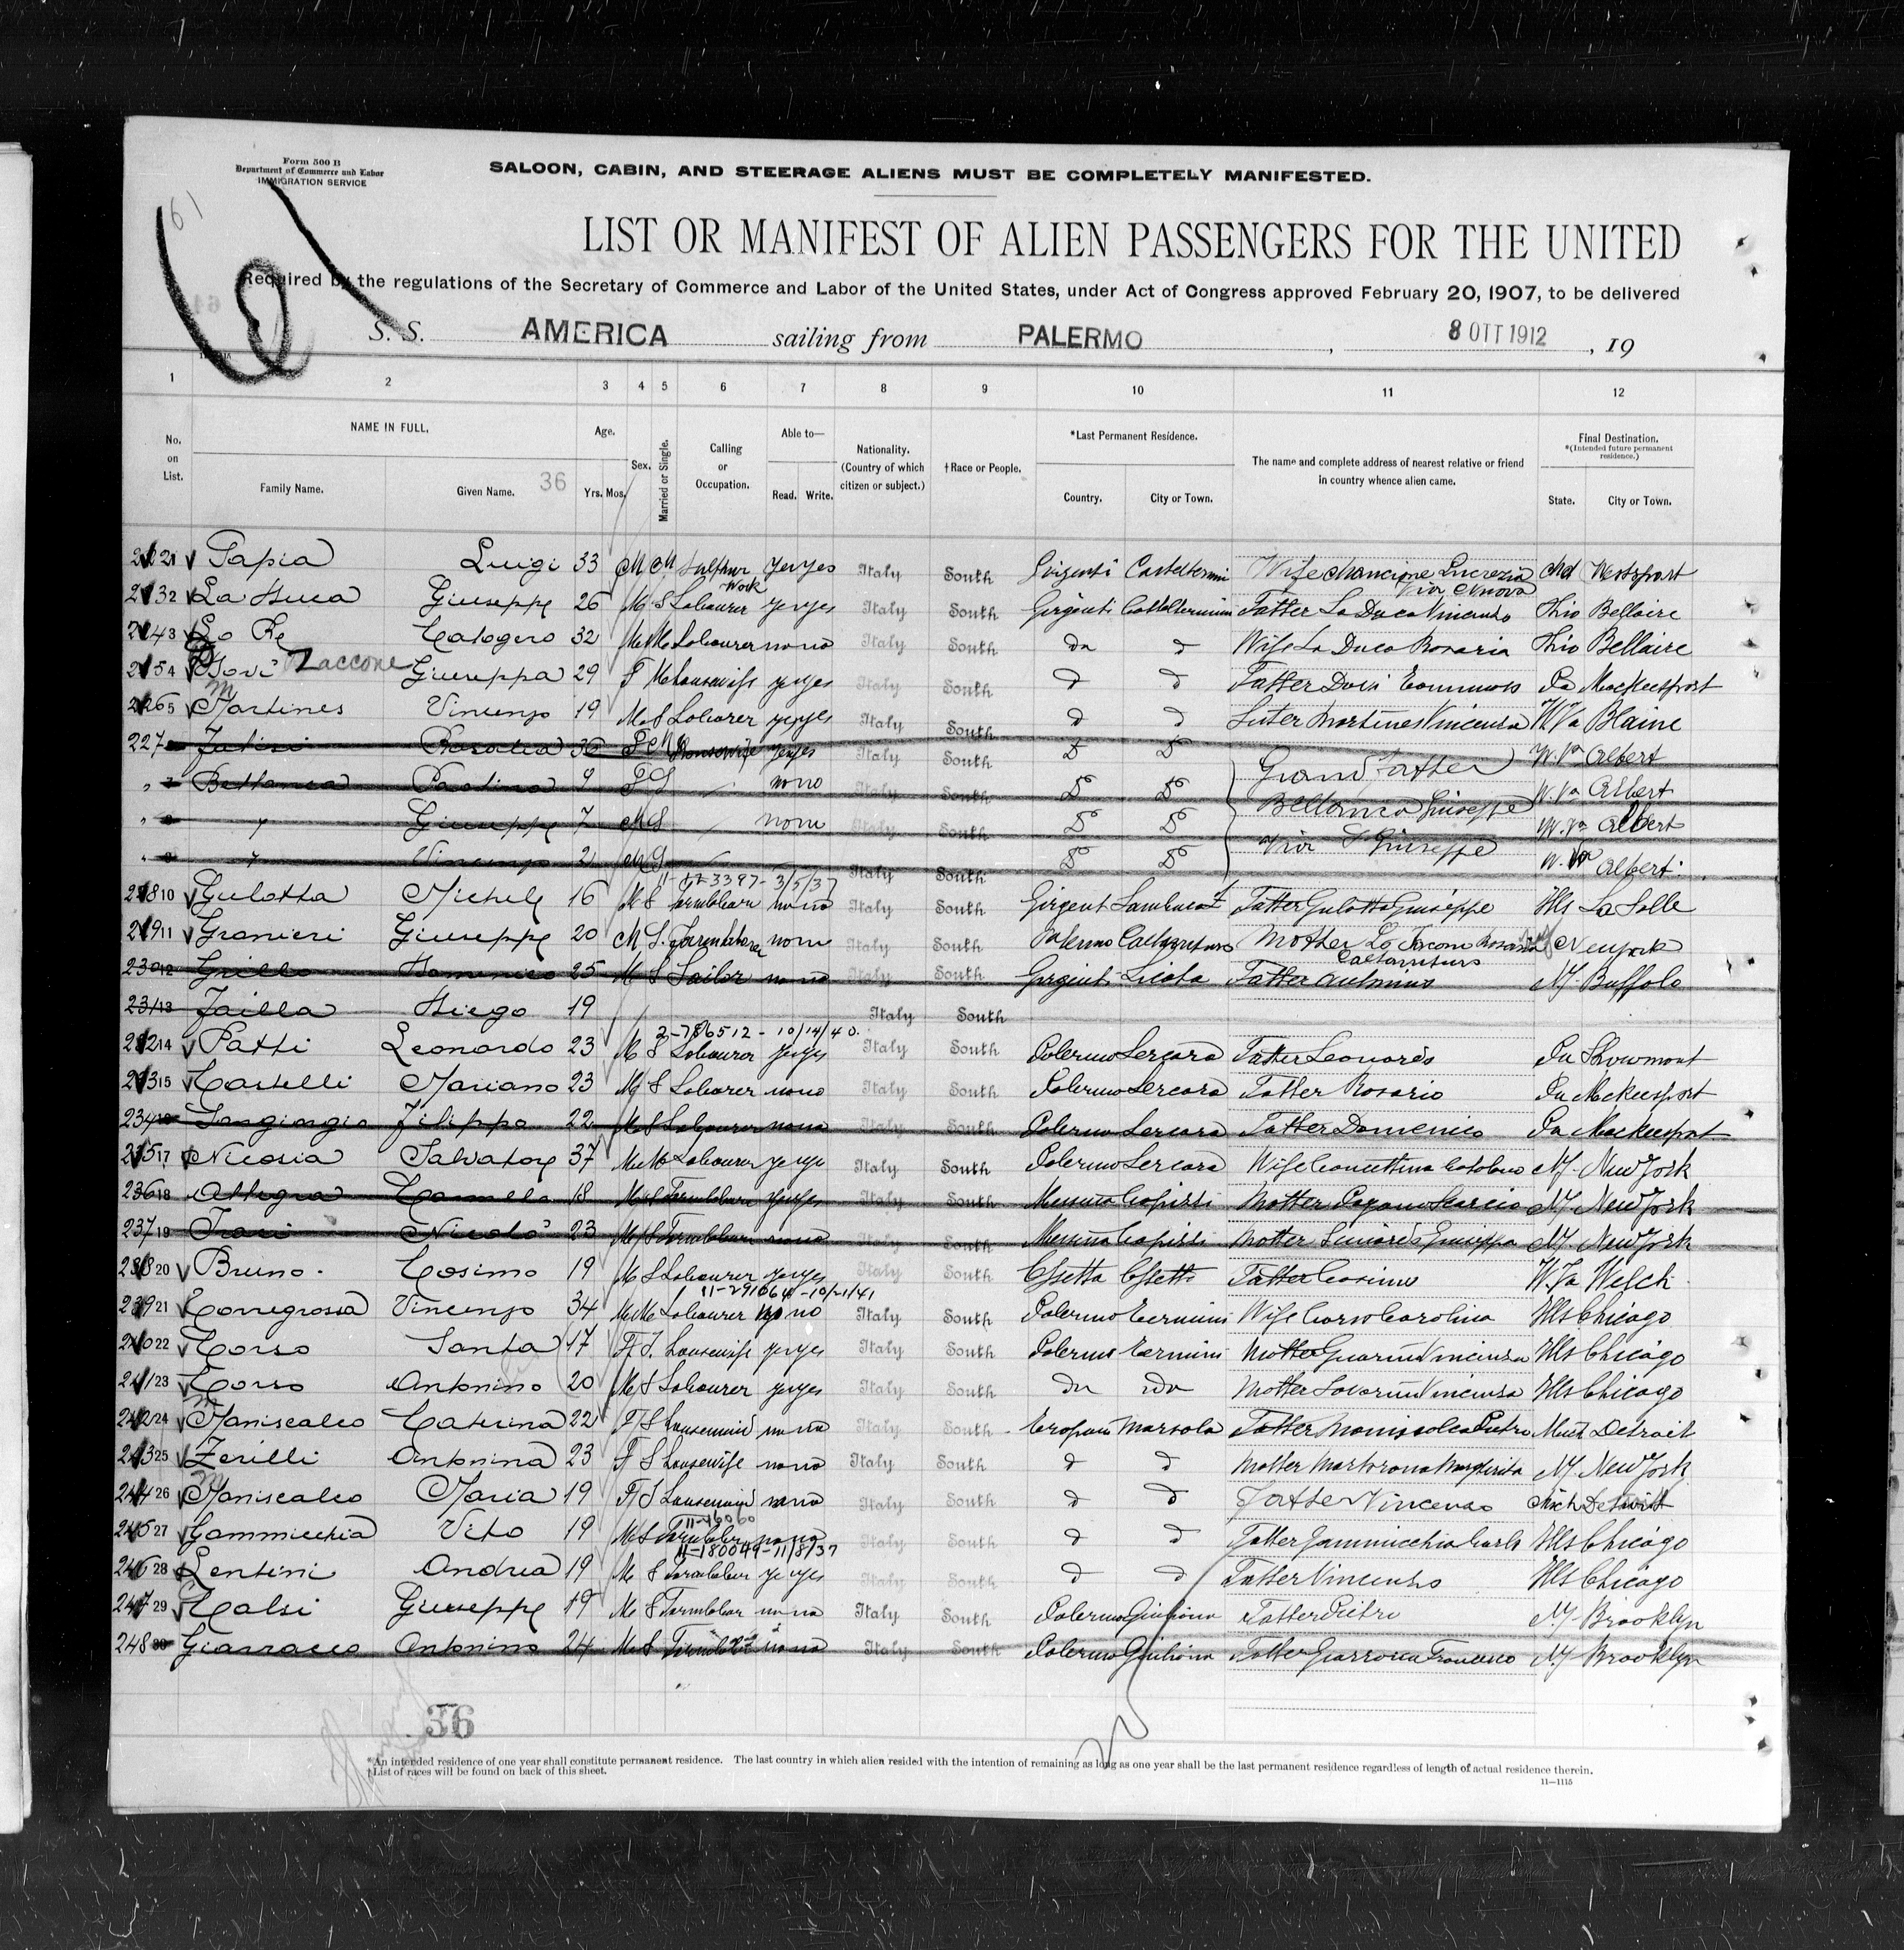 Form 500 B
Department of Commerce and Labor
IMMIGRATION SERVICE
61
SALOON, CABIN, AND STEERAGE ALIENS MUST BE COMPLETELY MANIFESTED.
LIST OR MANIFEST OF ALIEN PASSENGERS FOR THE UNITED
Required by the regulations of the Secretary of Commerce and Labor of the United States, under Act of Congress approved February 20, 1907, to be delivered
S. S. AMERICA sailing from PALERMO, 8 OTT 1912, 19
1 2 3 4 5 6 7 8 9 10 11 12
No. on List. NAME IN FULL. Family Name. Given Name. 36 Age. Yrs. Mos. Sex. Married or Single. Calling or Occupation. Able to— Read. Write. Nationality. (Country of which citizen or subject.) †Race or People. *Last Permanent Residence. Country. City or Town. The name and complete address of nearest relative or friend in country whence alien came. Final Destination. *(Intended future permanent residence.) State. City or Town.
1 Tapia Luigi 33 M M Sulphur Work yes yes Italy South Girgenti Wife Mancione Lucrezia Via Nuova Md Westport
2 Giuseppe 26 M S Labourer yes yes Italy South Girgenti Father La Duca Vincenzo Ohio Bellaire
3 Lo Re Calogero 32 M M Labourer no no Italy South do d Wife La Duca Rosaria Ohio Bellaire
4 Zaccone Giuseppa 29 F M housewife yes yes Italy South d d Father Pa MacKeesport
5 Martines Vincenzo 19 M S Labourer yes yes Italy South d d Sister Martines Vincenza W Va Blaine
227 Rosalia 36 F M Housewife yes yes Italy South D D Grand father W. Va Albert
Bellanca Paolina 9 F S no no Italy South D D Bellanca Giuseppe W. Va Albert
" Giuseppe 7 M S no no Italy South D D Via S Giuseppe W. Va Albert
" Vincenzo 2 M S Italy South D D W. Va Albert
11-
3397-3/5/37
10 Gulotta Michele 16 M S no no Italy South Girgenti Father Gulotta Giuseppe Ills La Salle
11 Granieri Giuseppe 20 M S. Farm labourer no no Italy South Palermo Mother Lo Rosaria Caltavuturo New York
230 12 Grillo Domenico 25 M S Sailor no no Italy South Girgenti Licata Father Antonino N.Y. Buffalo
231 13 Failla Diego 19 Italy South
2-786512-10/14/40.
14 Patti Leonardo 23 M S Labourer yes yes Italy South Palermo Lercara Father Leonardo Pa
15 Castelli Mariano 23 M S Labourer no no Italy South Palermo Lercara Father Rosario Pa McKeesport
234 Sangiorgio Filippo 22 M S Labourer no no Italy South Palermo Lercara Father Domenico Pa MacKeesport
17 Nicosia Salvatore 37 M M Labourer yes yes Italy South Palermo Lercara Wife Concettina N.Y. New York
236 18 Allegra Carmelo 18 M S yes yes Italy South Messina Capizzi Mother N.Y. New York
237 19 Nicolo 23 M S no no Italy South Messina Capizzi Mother Giuseppa N.Y. New York
20 Bruno Cosimo 19 M S Labourer yes yes Italy South Father Cosimo W. Va Welch
11-291064-10/21/41
21 Conigrossa Vincenzo 34 M M Labourer no no Italy South Palermo Termini Wife Corso Carolina Ills Chicago
22 Corso Santa 17 F S. housewife yes yes Italy South Palermo Termini Mother Vincenza Ills Chicago
23 Corso Antonino 20 M S Labourer yes yes Italy South do do Mother Vincenza Ills Chicago
24 Maniscalco Caterina 22 F S housemaid no no Italy South Trapani Marsala Father Maniscalco Pietro Mich Detroit
25 Zerilli Antonina 23 F S housewife no no Italy South d d Mother Martorana Margherita N.Y. New York
26 Maniscalco Maria 19 F S housemaid no no Italy South d d Father Vincenzo Mich Detroit
11-16060
27 Gammicchia Vito 19 M S no no Italy South d d Father Gammicchia Carlo Ills Chicago
11-180049-11/8/37
28 Lentini Andrea 19 M S yes yes Italy South d d Father Vincenzo Ills Chicago
29 Calsi Giuseppe 19 M S no no Italy South Palermo Giuliana Father Pietro N.Y. Brooklyn
248 30 Giarracco Antonino 24 M S no no Italy South Palermo Giuliana Father Francesco N.Y. Brooklyn
36
*An intended residence of one year shall constitute permanent residence. The last country in which alien resided with the intention of remaining as long as one year shall be the last permanent residence regardless of length of actual residence therein.
†List of races will be found on back of this sheet.
11—1115